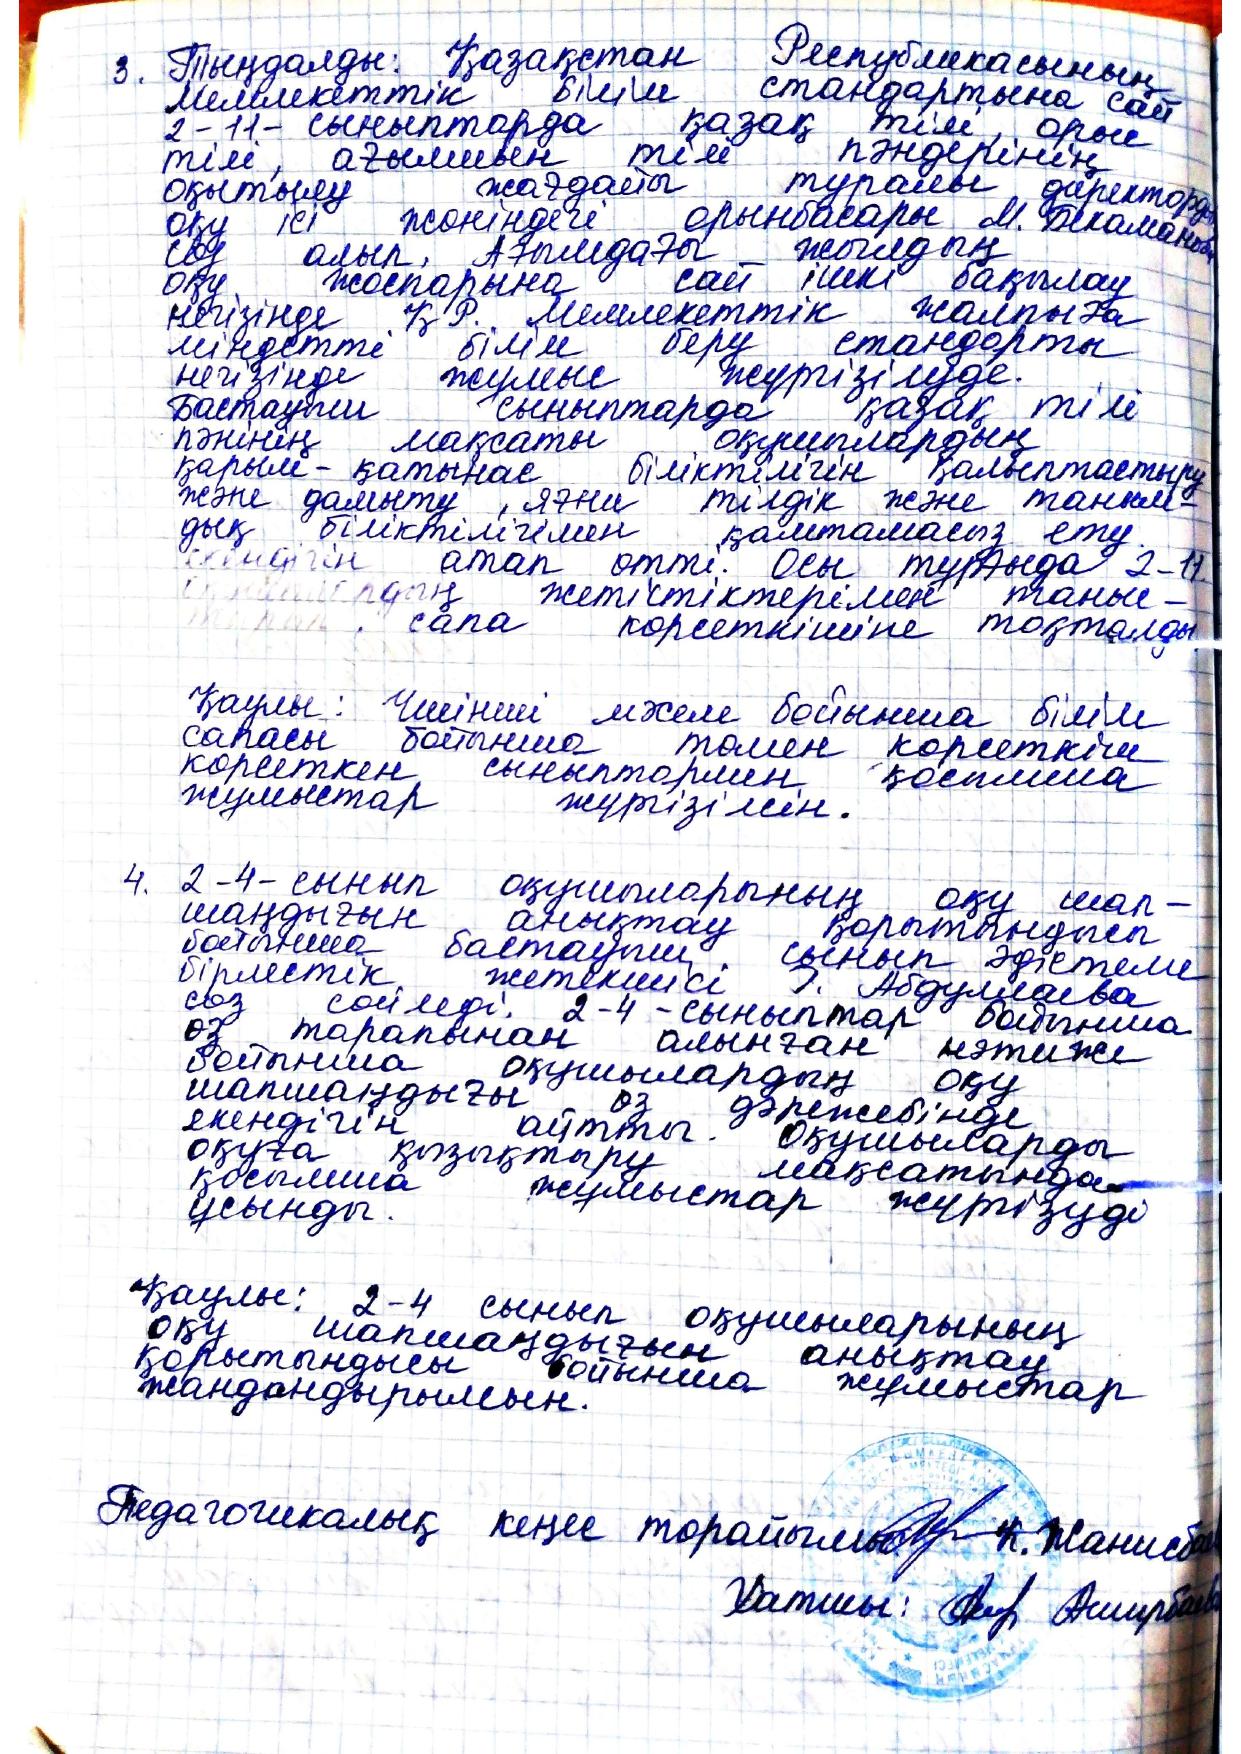 3. Тыңдалды: Қазақстан Республикасының
Мемлекеттік білім стандартына сай
2-11- сыныптарда қазақ тілі, орыс
тілі, ағылшын тілі пәндерінің
оқытылу жағдайы туралы директордың
оқу ісі жөніндегі орынбасары М. Бекаманова
сөз алып, Ағымдағы жылдың
оқу жоспарына сай ішкі бақылау
негізінде ҚР. Мемлекеттік жалпыға
міндетті білім беру стандарты
негізінде жұмыс жүргізілуде.
Бастауыш сыныптарда қазақ тілі
пәнінің мақсаты оқушылардың
қарым-қатынас біліктілігін қалыптастыру
және дамыту, яғни тілдік және таным-
дық біліктілігімен қамтамасыз ету
екендігін атап өтті. Осы тұрғыда 2-11
жетістіктерімен таныс-
тырып, сапа көрсеткішіне тоқталды
Қаулы: Үшінші мәселе бойынша білім
сапасы бойынша төмен көрсеткіш
көрсеткен сыныптармен қосымша
жұмыстар жүргізілсін.
4. 2-4- сынып оқушыларының оқу шап-
шаңдығын анықтау қорытындысы
бойынша бастауыш сынып әдістеме
бірлестік жетекшісі Абдуллаева
сөз сөйледі. 2-4-сыныптар бойынша
өз тарапынан алынған нәтиже
бойынша оқушылардың оқу
шапшаңдығы өз дәрежесінде
екендігін айтты. Оқушыларды
оқуға қызықтыру мақсатында
қосымша жұмыстар жүргізуді
ұсынды.
Қаулы: 2-4 сынып оқушыларының
оқу шапшаңдығын анықтау
қорытындысы бойынша жұмыстар
жандандырылсын.
Педагогикалық кеңес төрайымы К. Жанисбаева
Хатшы: Аширбаева